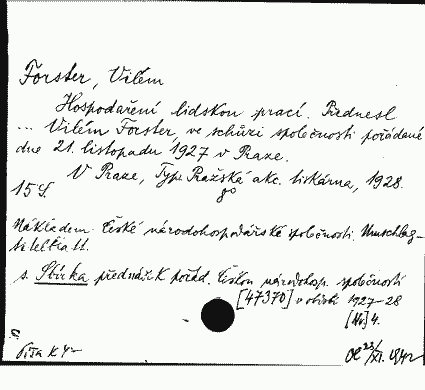 Forster, Vilém
Hospodaření lidskou prací. Přednesl
... Vilém Forster, ve schůzi společnosti pořádané
dne 21. listopadu 1927 v Praze.
V Praze, Typ. Pražská akc. tiskárna, 1928.
15 S. 8°
Nákladem České národohospodářské společnosti. Umschlag-
titelblatt.
s. Sbírka přednášek pořád. Českou národohosp. společností
[47370] v období 1927-28
[No] 4.